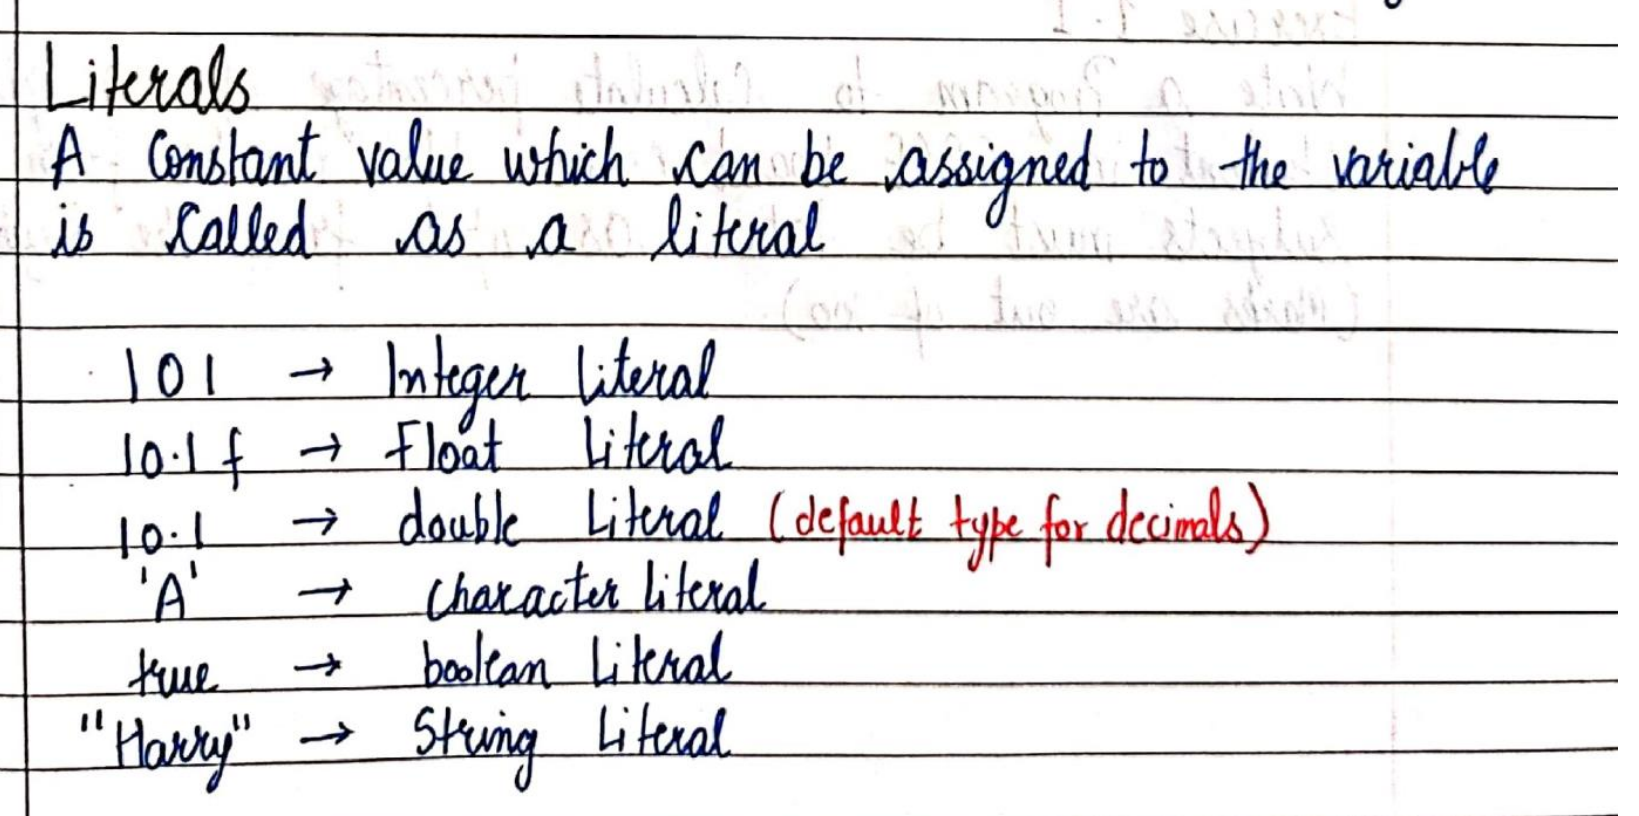 Literals
A Constant value which can be assigned to the variable
is Called as a literal
101 → Integer literal
10.1 f → Float Literal
10.1 → double Literal (default type for decimals)
'A' → Character Literal
true → boolean Literal
"Harry" → String Literal